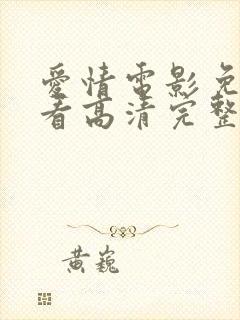 愛情電影免
看高清完整
黃巍